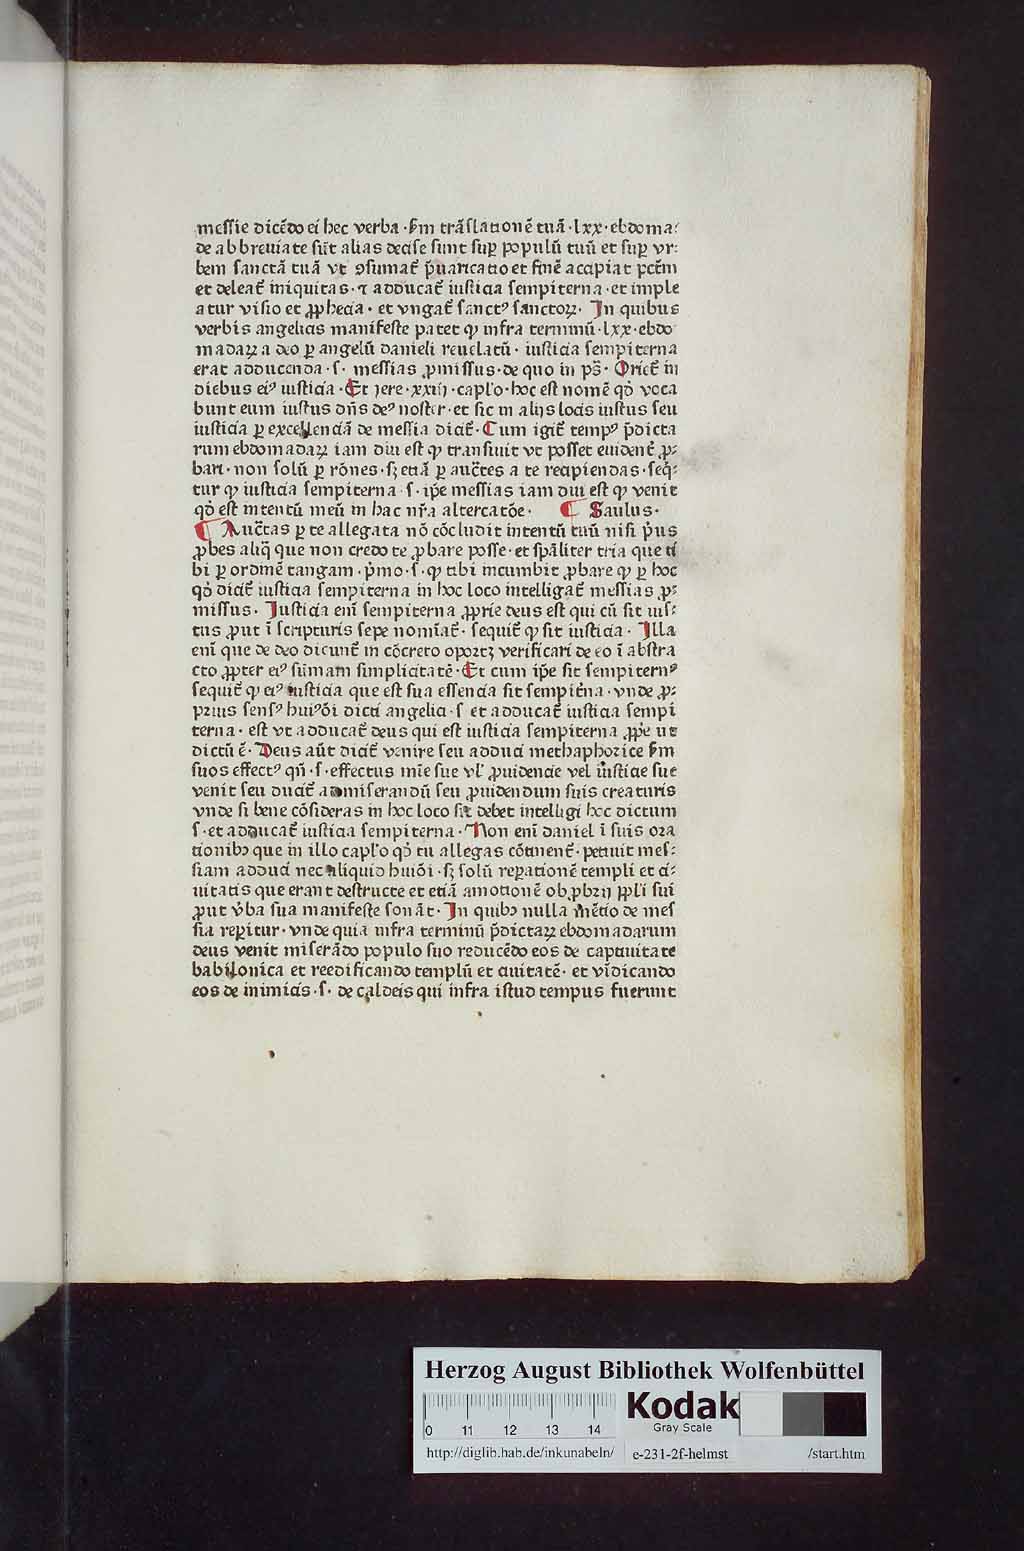 messie dicẽdo ei hec verba · s̃m trãslationẽ tuã · lxx · ebdoma:
de abbreuiate sũt alias decise sunt suꝑ populũ tuũ et suꝑ vr:
bem sanctã tuã vt ꝯsumat᷑ p̃uaricatio et finẽ accipiat pctm̃
et deleat᷑ iniquitas · ⁊ adducat᷑ iusticia sempiterna · et imple
atur visio et ꝓphecia · et vngat᷑ sanctꝰ sanctoꝝ · In quibus
verbis angelicis manifeste patet ꝙ infra terminũ · lxx · ebdo
madaꝝ a deo ꝑ angelũ danieli reuelatũ · iusticia sempiterna
erat adducenda · s · messias ꝓmissus · de quo in ps̃ · Oriet᷑ in
diebus eiꝰ iusticia · Et Jere · xxiij · capl̃o · hoc est nomẽ qð voca
bunt eum iustus dñs deꝰ noster · et sic in alijs locis iustus seu
iusticia ꝑ excellenciã de messia dicit᷑ · Cum igit᷑ tempꝰ p̃dicta
rum ebdomadaꝝ iam diu est ꝙ transiuit vt posset euident᷑ ꝓ:
bari · non solũ ꝑ rõnes · sꝫ etiã ꝑ auctẽs a te recipiendas · seq̃:
tur ꝙ iusticia sempiterna · s · ip̃e messias iam diu est ꝙ venit
qð est intentũ meũ in hac nr̃a altercatõe · ¶ Saulus ·
¶ Auctãs ꝑ te allegata nõ cõcludit intentũ tuũ nisi p̃us
ꝓbes aliq̃ que non credo te ꝓbare posse · et sp̃aliter tria que ti
bi ꝑ ordinẽ tangam · p̃mo · s · ꝙ tibi incumbit ꝓbare ꝙ ꝑ hoc
qð dicit᷑ iusticia sempiterna in hoc loco intelligat᷑ messias ꝓ:
missus · Iusticia enĩ sempiterna ꝓprie deus est qui cũ sit ius:
tus ꝓut ĩ scripturis sepe nomĩat᷑ · sequit᷑ ꝙ sit iusticia · Illa
enĩ que de deo dicunt᷑ in cõcreto oportꝫ verificari de eo ĩ abstra
cto ꝓpter eiꝰ sũmam simplicitatẽ · Et cum ip̃e sit sempiternꝰ
sequit᷑ ꝙ eiꝰ iusticia que est sua essencia sit sempit̃na · vnde ꝓ:
prius sensꝰ huiꝰõi dicti angelici · s · et adducat᷑ iusticia sempi
terna · est vt adducat᷑ deus qui est iusticia sempiterna ꝓpͥe ut
dictũ ẽ · Deus aũt dicit᷑ venire seu adduci methaphorice s̃m
suos effectꝰ qñ · s · effectus mĩe sue vl̃ ꝓuidencie vel iusticie sue
venit seu ducit᷑ ad miserandũ seu ꝓuidendum suis creaturis
vnde si bene cõsideras in hoc loco sic debet intelligi hoc dictum
s · et adducat᷑ iusticia sempiterna · Non enĩ daniel ĩ suis ora
tionibꝫ que in illo capl̃o qð tu allegas cõtinent᷑ · petiuit mes:
siam adduci nec aliquid huiõi · sꝫ solũ reꝑationẽ templi et ci:
uitatis que erant destructe et etiã amotionẽ obꝓbrij ppl̃i sui
ꝓut v̾ba sua manifeste sonãt · In quibꝫ nulla mẽtio de mes
sia reꝑitur · vnde quia infra terminũ p̃dictaꝝ ebdomadarum
deus venit miserãdo populo suo reducẽdo eos de captiuitate
babilonica et reedificando templũ et ciuitatẽ · et vĩdicando
eos de inimicis · s · de caldeis qui infra istud tempus fuerunt
Herzog August Bibliothek Wolfenbüttel
0 11 12 13 14
Kodak
Gray Scale
http://diglib.hab.de/inkunabeln/ e-231-2f-helmst /start.htm